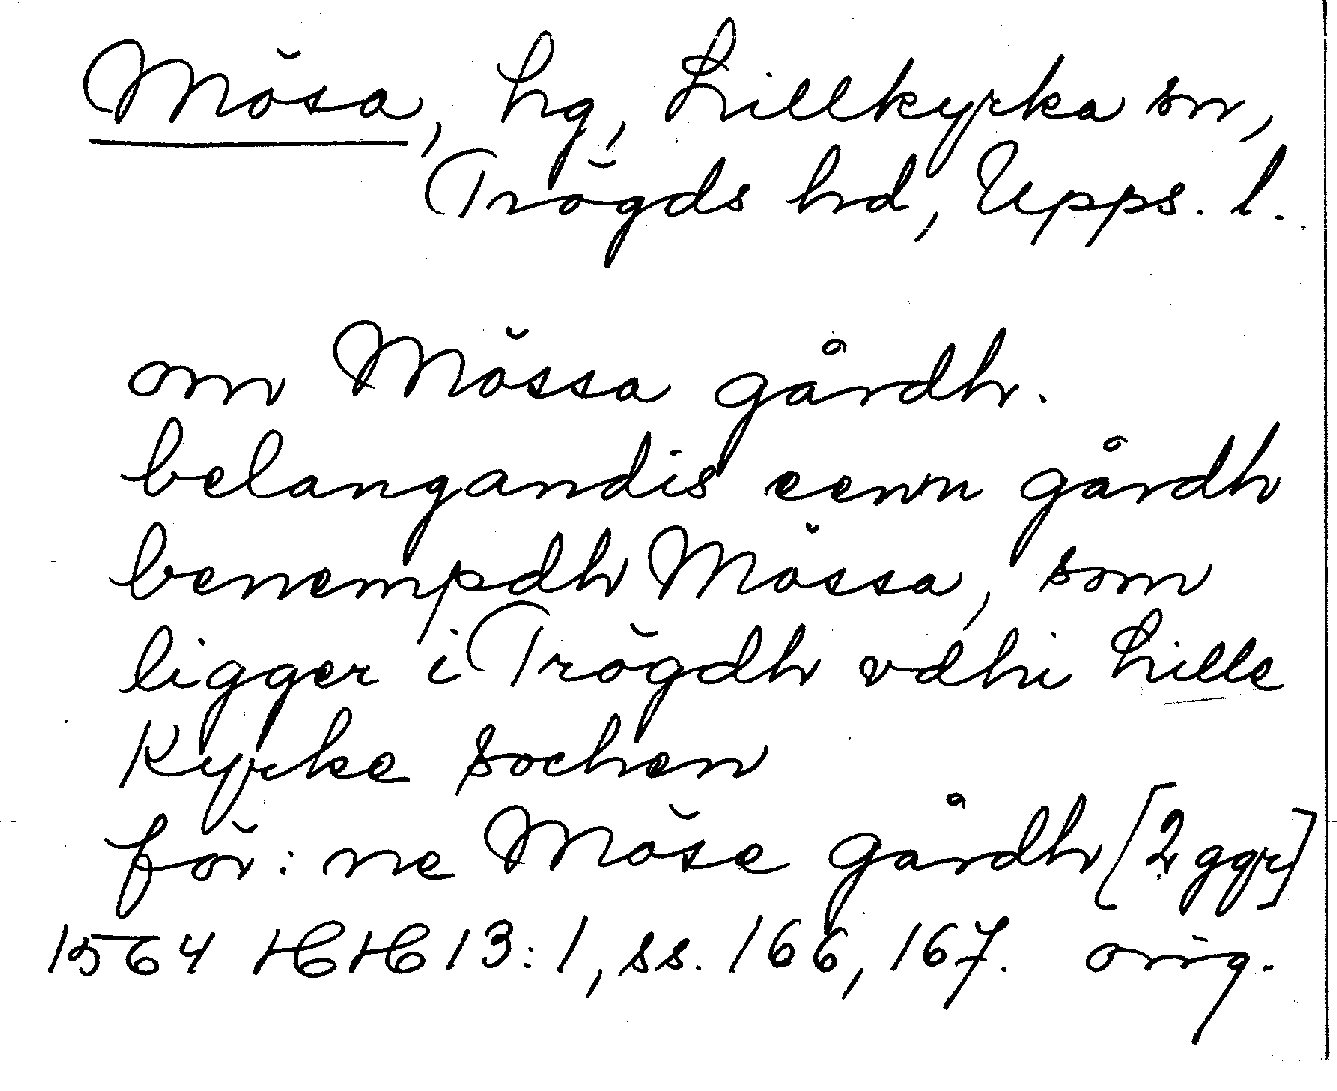 Mösa, hg, Lillkyrka sn,
Trögds hd, Upps. l.
om Mössa gårdh.
belangandis eenn gårdh
benempdh Mössa, som
ligger i Trögdh vdhi Lille
Kyrke sochen
för: ne Möse gårdh [2 ggr]
1564 HH 13:1, ss. 166, 167. orig.